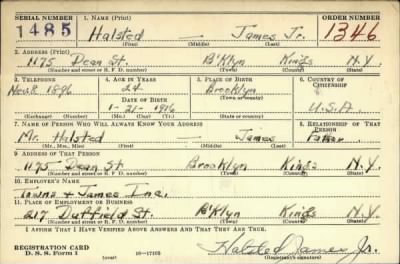 SERIAL NUMBER 1. NAME (Print) ORDER NUMBER
1485 Halsted James Jr. 1346
(First) (Middle) (Last)
2. ADDRESS (Print)
1175 Dean St. B'Klyn Kings N.Y.
(Number and street or R. F. D. number) (Town) (County) (State)
3. TELEPHONE 4. AGE IN YEARS 5. PLACE OF BIRTH 6. COUNTRY OF CITIZENSHIP
Nev8 1896 24 Brooklyn
DATE OF BIRTH (Town or county)
1-21-1916 U.S.A.
(Exchange) (Number) (Mo.) (Day) (Yr.) (State or country)
7. NAME OF PERSON WHO WILL ALWAYS KNOW YOUR ADDRESS 8. RELATIONSHIP OF THAT PERSON
Mr. Halsted James Father
(Mr., Mrs., Miss) (First) (Middle) (Last)
9. ADDRESS OF THAT PERSON
1175 Dean St Brooklyn Kings N.Y.
(Number and street or R. F. D. number) (Town) (County) (State)
10. EMPLOYER'S NAME
Towns + James Inc.
11. PLACE OF EMPLOYMENT OR BUSINESS
217 Duffield St. B'Klyn Kings N.Y.
(Number and street or R. F. D. number) (Town) (County) (State)
I AFFIRM THAT I HAVE VERIFIED ABOVE ANSWERS AND THAT THEY ARE TRUE.
REGISTRATION CARD
D. S. S. Form 1 (over) 16-17105 Halsted James Jr.
(Registrant's signature)